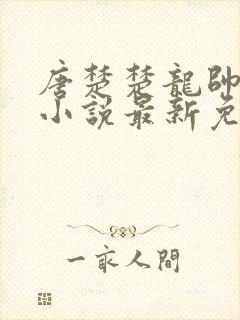 唐楚楚龍帥
小說最新免
一家人間